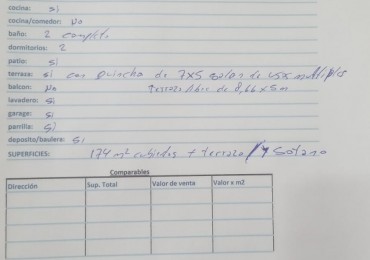 cocina: si
cocina/comedor: No
baño: 2 completo
dormitorios: 2
patio: si
terraza: si con quincho de 7x5 salon de usos multiples
balcon: No terraza libre de 8,66 x 5m
lavadero: si
garage: si
parrilla: si
deposito/baulera: si
SUPERFICIES: 174 m² cubiertos + terraza y sotano
Comparables
Dirección Sup. Total Valor de venta Valor x m2